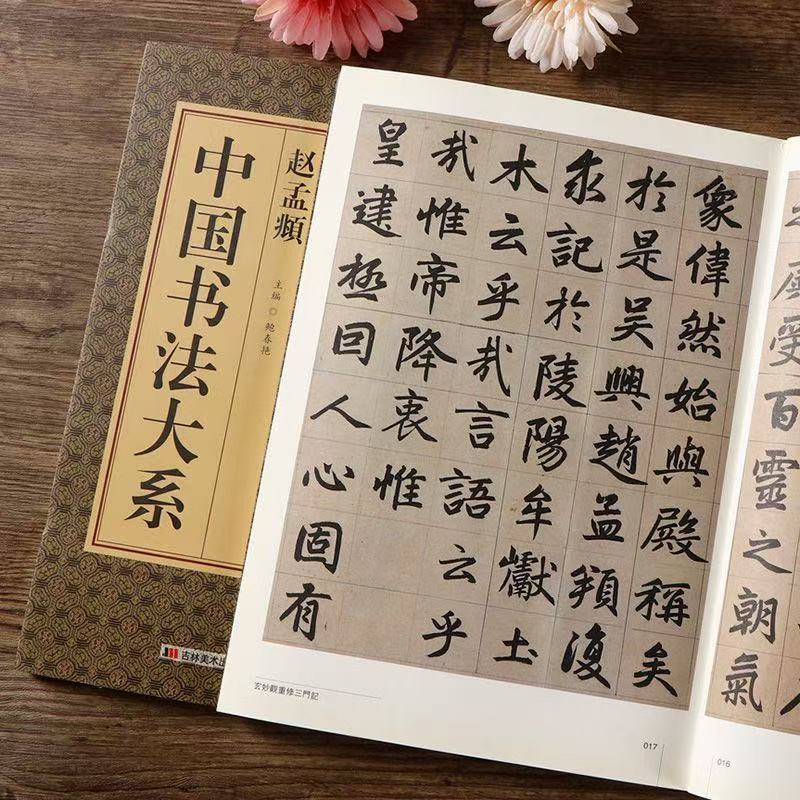 赵孟頫
中国书法大系
主编◎鲍春艳
吉林美术出
受百靈之朝氣
象偉然始與殿稱矣
於是吴興趙孟頫復
求記於陵陽牟巘土
木云乎哉言語云乎
哉惟帝降衷惟
皇建極囙人心固有
玄妙觀重修三門記
017
016